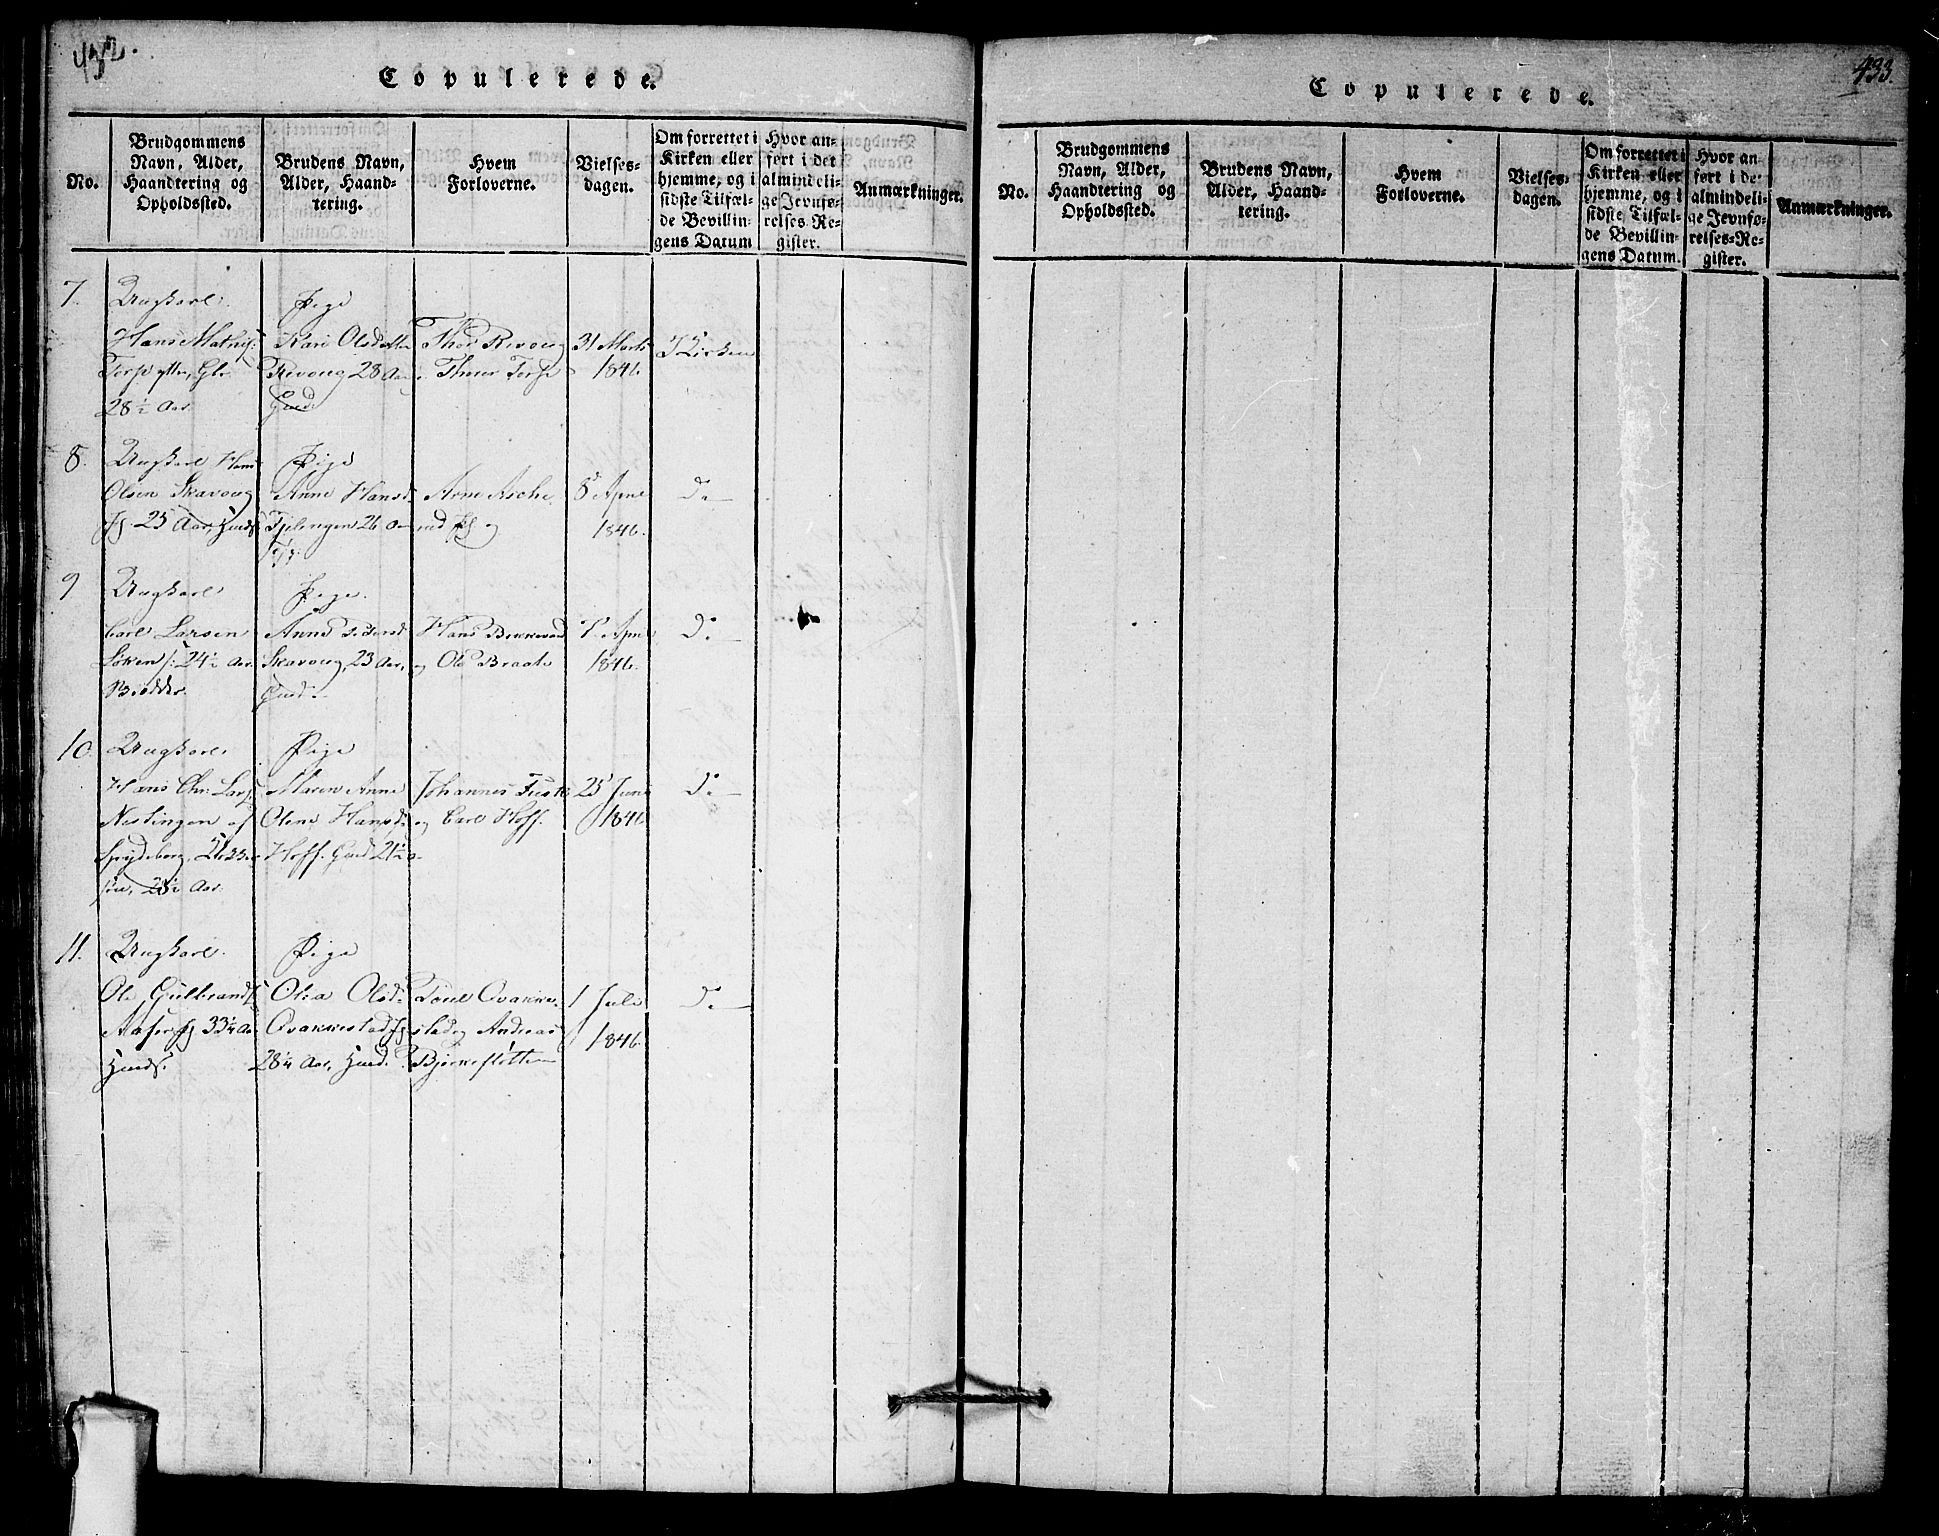 432.
Copulerede.
No.
Brudgommens
Navn, Alder,
Haandtering og
Opholdssted.
Brudens Navn,
Alder, Haand-
tering.
Hvem
Forloverne.
Vielses-
dagen.
Om forrettet i
Kirken eller
hjemme, og i
sidste Tilfæl-
de Bevillin-
gens Datum
Hvor an-
ført i det
almindeli-
ge Jevnfø-
relses-Re-
gister.
Anmærkninger.
7.
Ungkarl
Hans Mathis:
Torp ytter, Glr.
28½ Aar.
Pige
Kari Olsdatter
Revoug 28 Aar
Gaard.
Thor Revoug
Thorer Torp
31 Marts
1846.
I Kirken
8.
Ungkarl Hans
Olsen Skavoug
25 Aar, Huus
Pige
Anne Hansd
Tjelingen 26 Aar
Arne Asche
og
8 Apr
1846.
Do
9
Ungkarl
Carl Larsen
Löken 24½ Aar.
Brödder
Pige.
Anne Pedersd
Skavoug, 23 Aar,
Hans
og Ole Braate
7 Apr
1846.
Do
10.
Ungkarl
Hans Chr. Lars
Nestingen af
Spydeberg,
28½ Aar.
Pige
Maren Anne
Oline Hansd:
Hoff. Gaard 21½
Johannes
og Carl Hoff.
25 Juni
1846
Do
11.
Ungkarl.
Ole Gulbrands
33¼ Aar
Huus.
Pige
Olea Olsd:
Ovakkestad
28¼ Aar,
Poul Ovakke-
stad og Andreas
Björnesløtten
1 Juli
1846.
Do
433.
Copulerede.
No.
Brudgommens
Navn, Alder,
Haandtering og
Opholdssted.
Brudens Navn,
Alder, Haand-
tering.
Hvem
Forloverne.
Vielses-
dagen.
Om forrettet i
Kirken eller
hjemme, og i
sidste Tilfæl-
de Bevillin-
gens Datum.
Hvor an-
ført i de
almindeli-
ge Jevnfø-
relses-Re-
gister.
Anmærkninger.